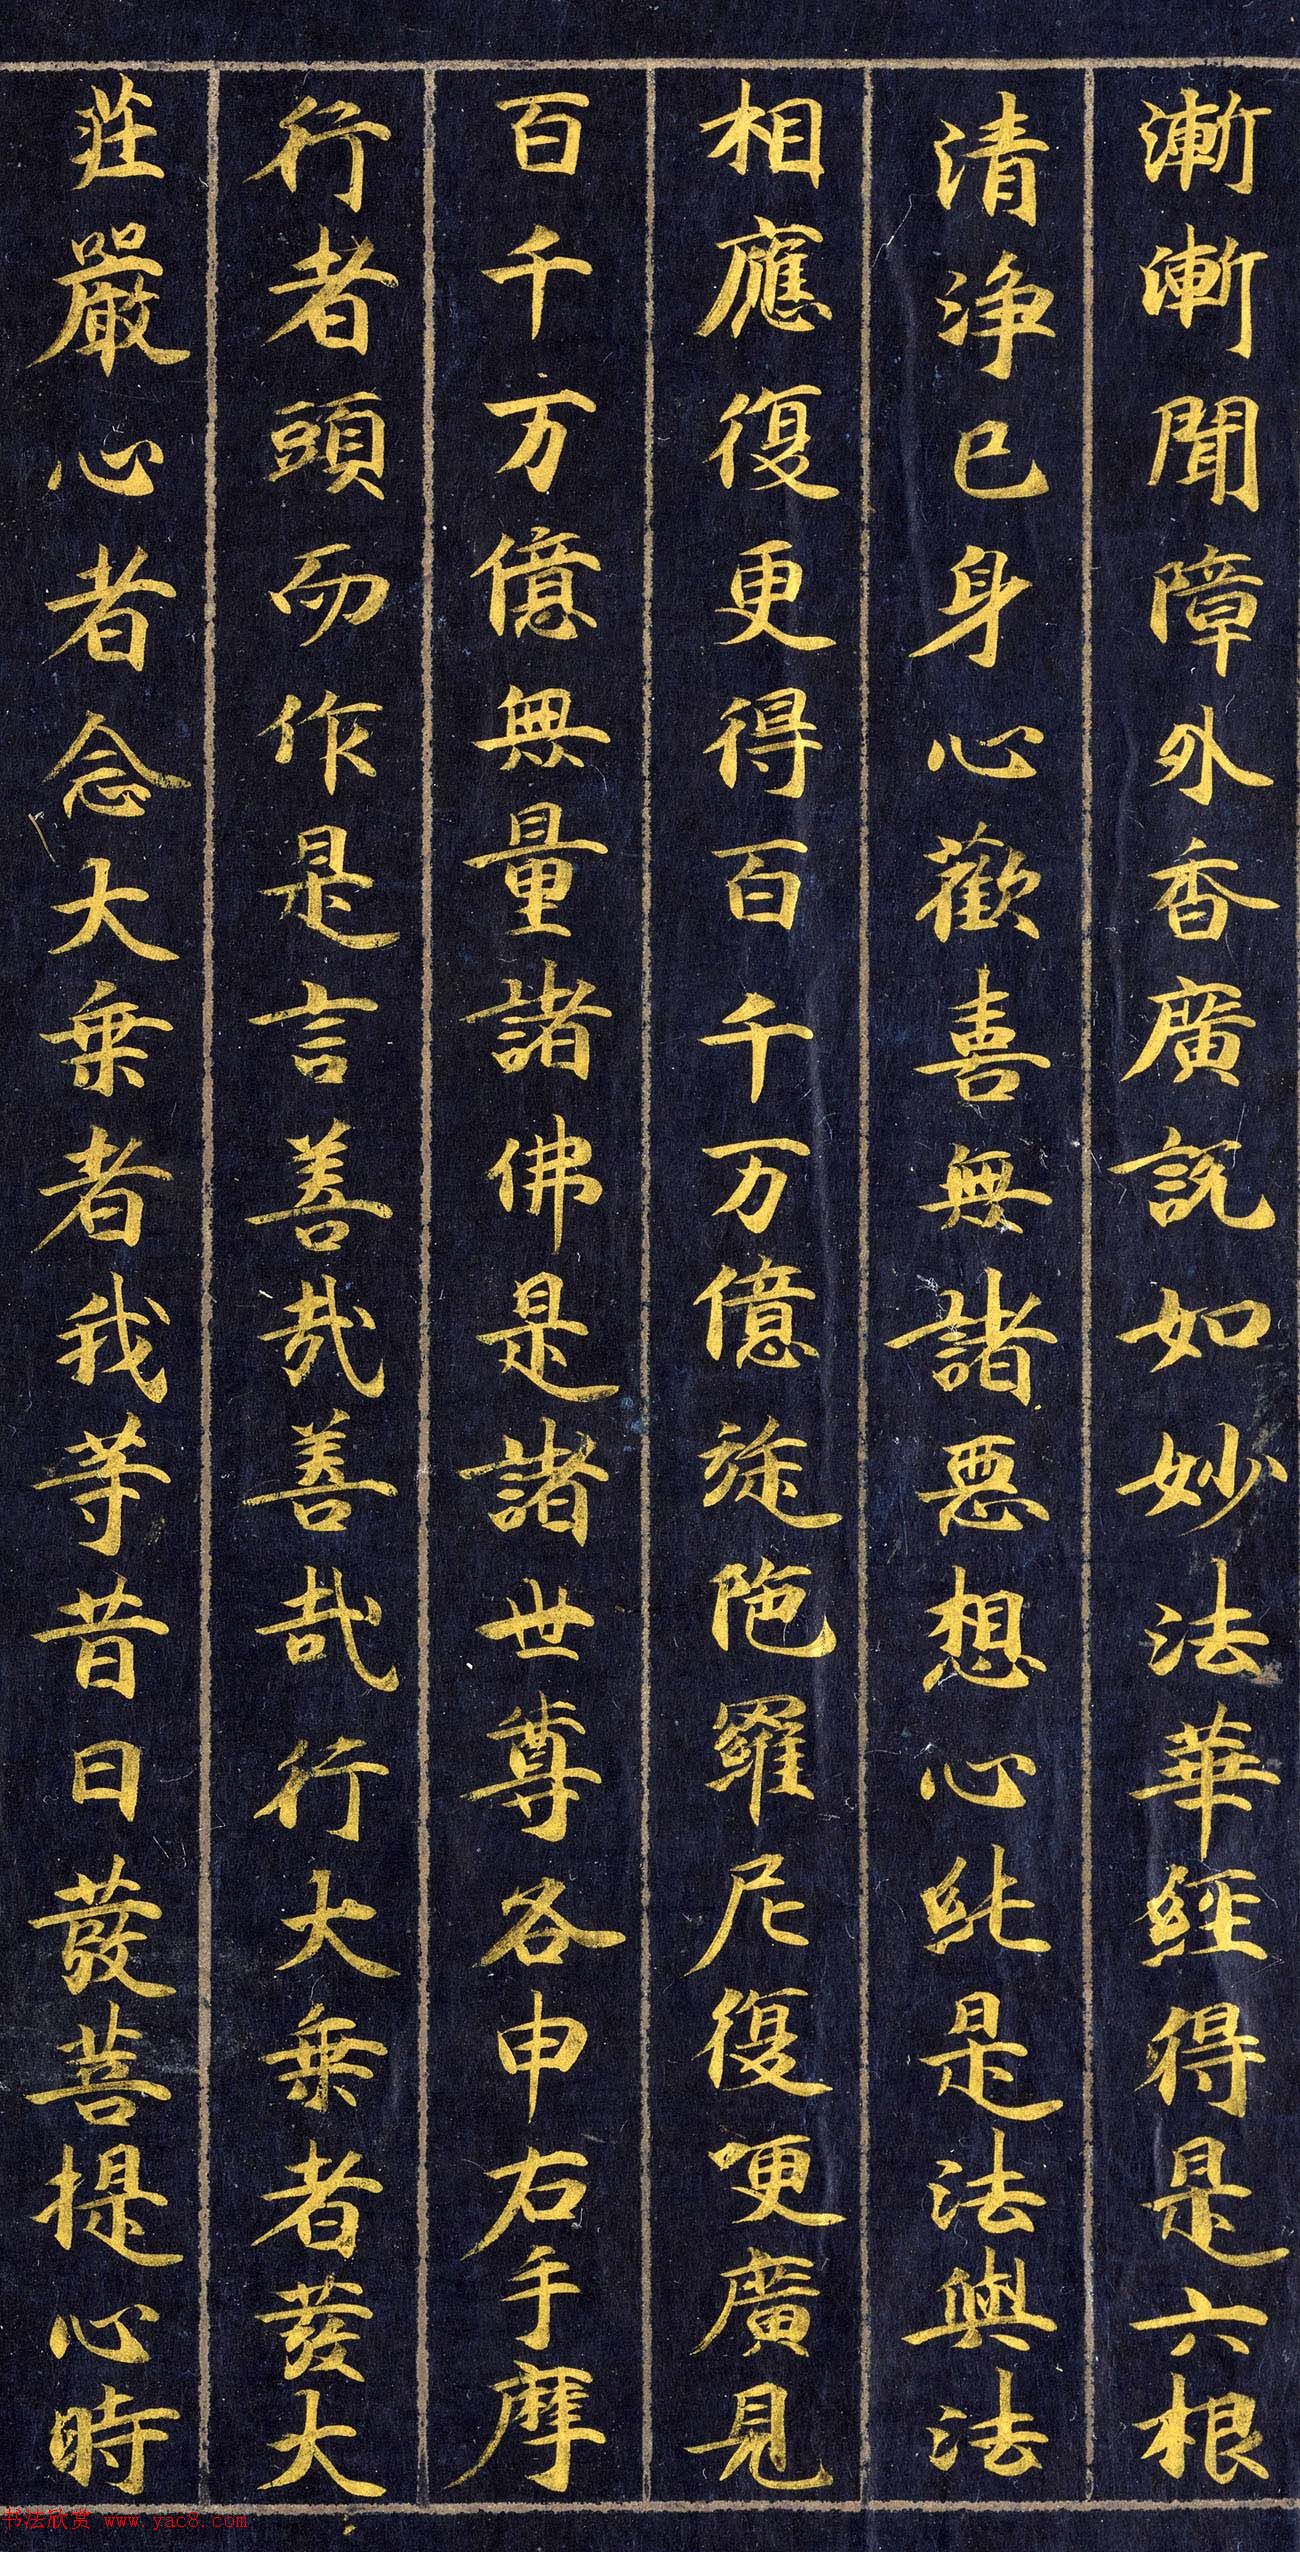 漸漸聞障外香廣説如妙法華經得是六根
清浄已身心歡喜無諸惡想心純是法與法
相應復更得百千万億旋陁羅尼復更廣見
百千万億無量諸佛是諸世尊各申右手摩
行者頭而作是言善哉善哉行大乗者發大
莊嚴心者念大乗者我等昔日發菩提心時
书法欣赏 www.yac8.com